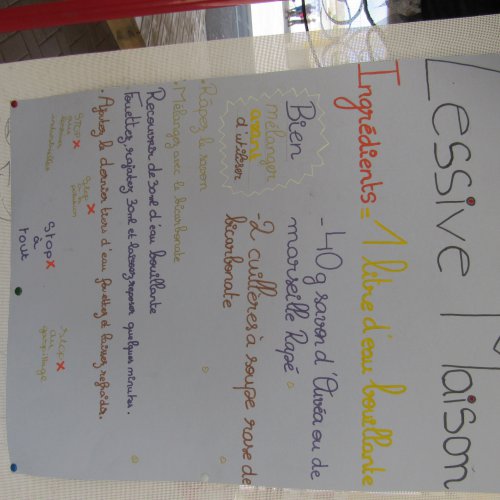 Lessive Maison
Ingrédients = 1 litre d'eau bouillante
- 40g savon d'Ouvéa ou de
marseille Rapé
- 2 cuillères à soupe rase de
bicarbonate
Bien
mélanger
avant
d'utiliser
- Râpez le savon
- Mélangez avec le bicarbonate
Recouvrer de 30ml d'eau bouillante
Fouettez, rajoutez 30ml et laissez reposer quelques minutes.
- Ajoutez le dernier tiers d'eau, fouettez et laissez refroidir.
STOP X
industrielles
Stop X
à la
Stop X
à
tout
Stop X
au
gaspillage